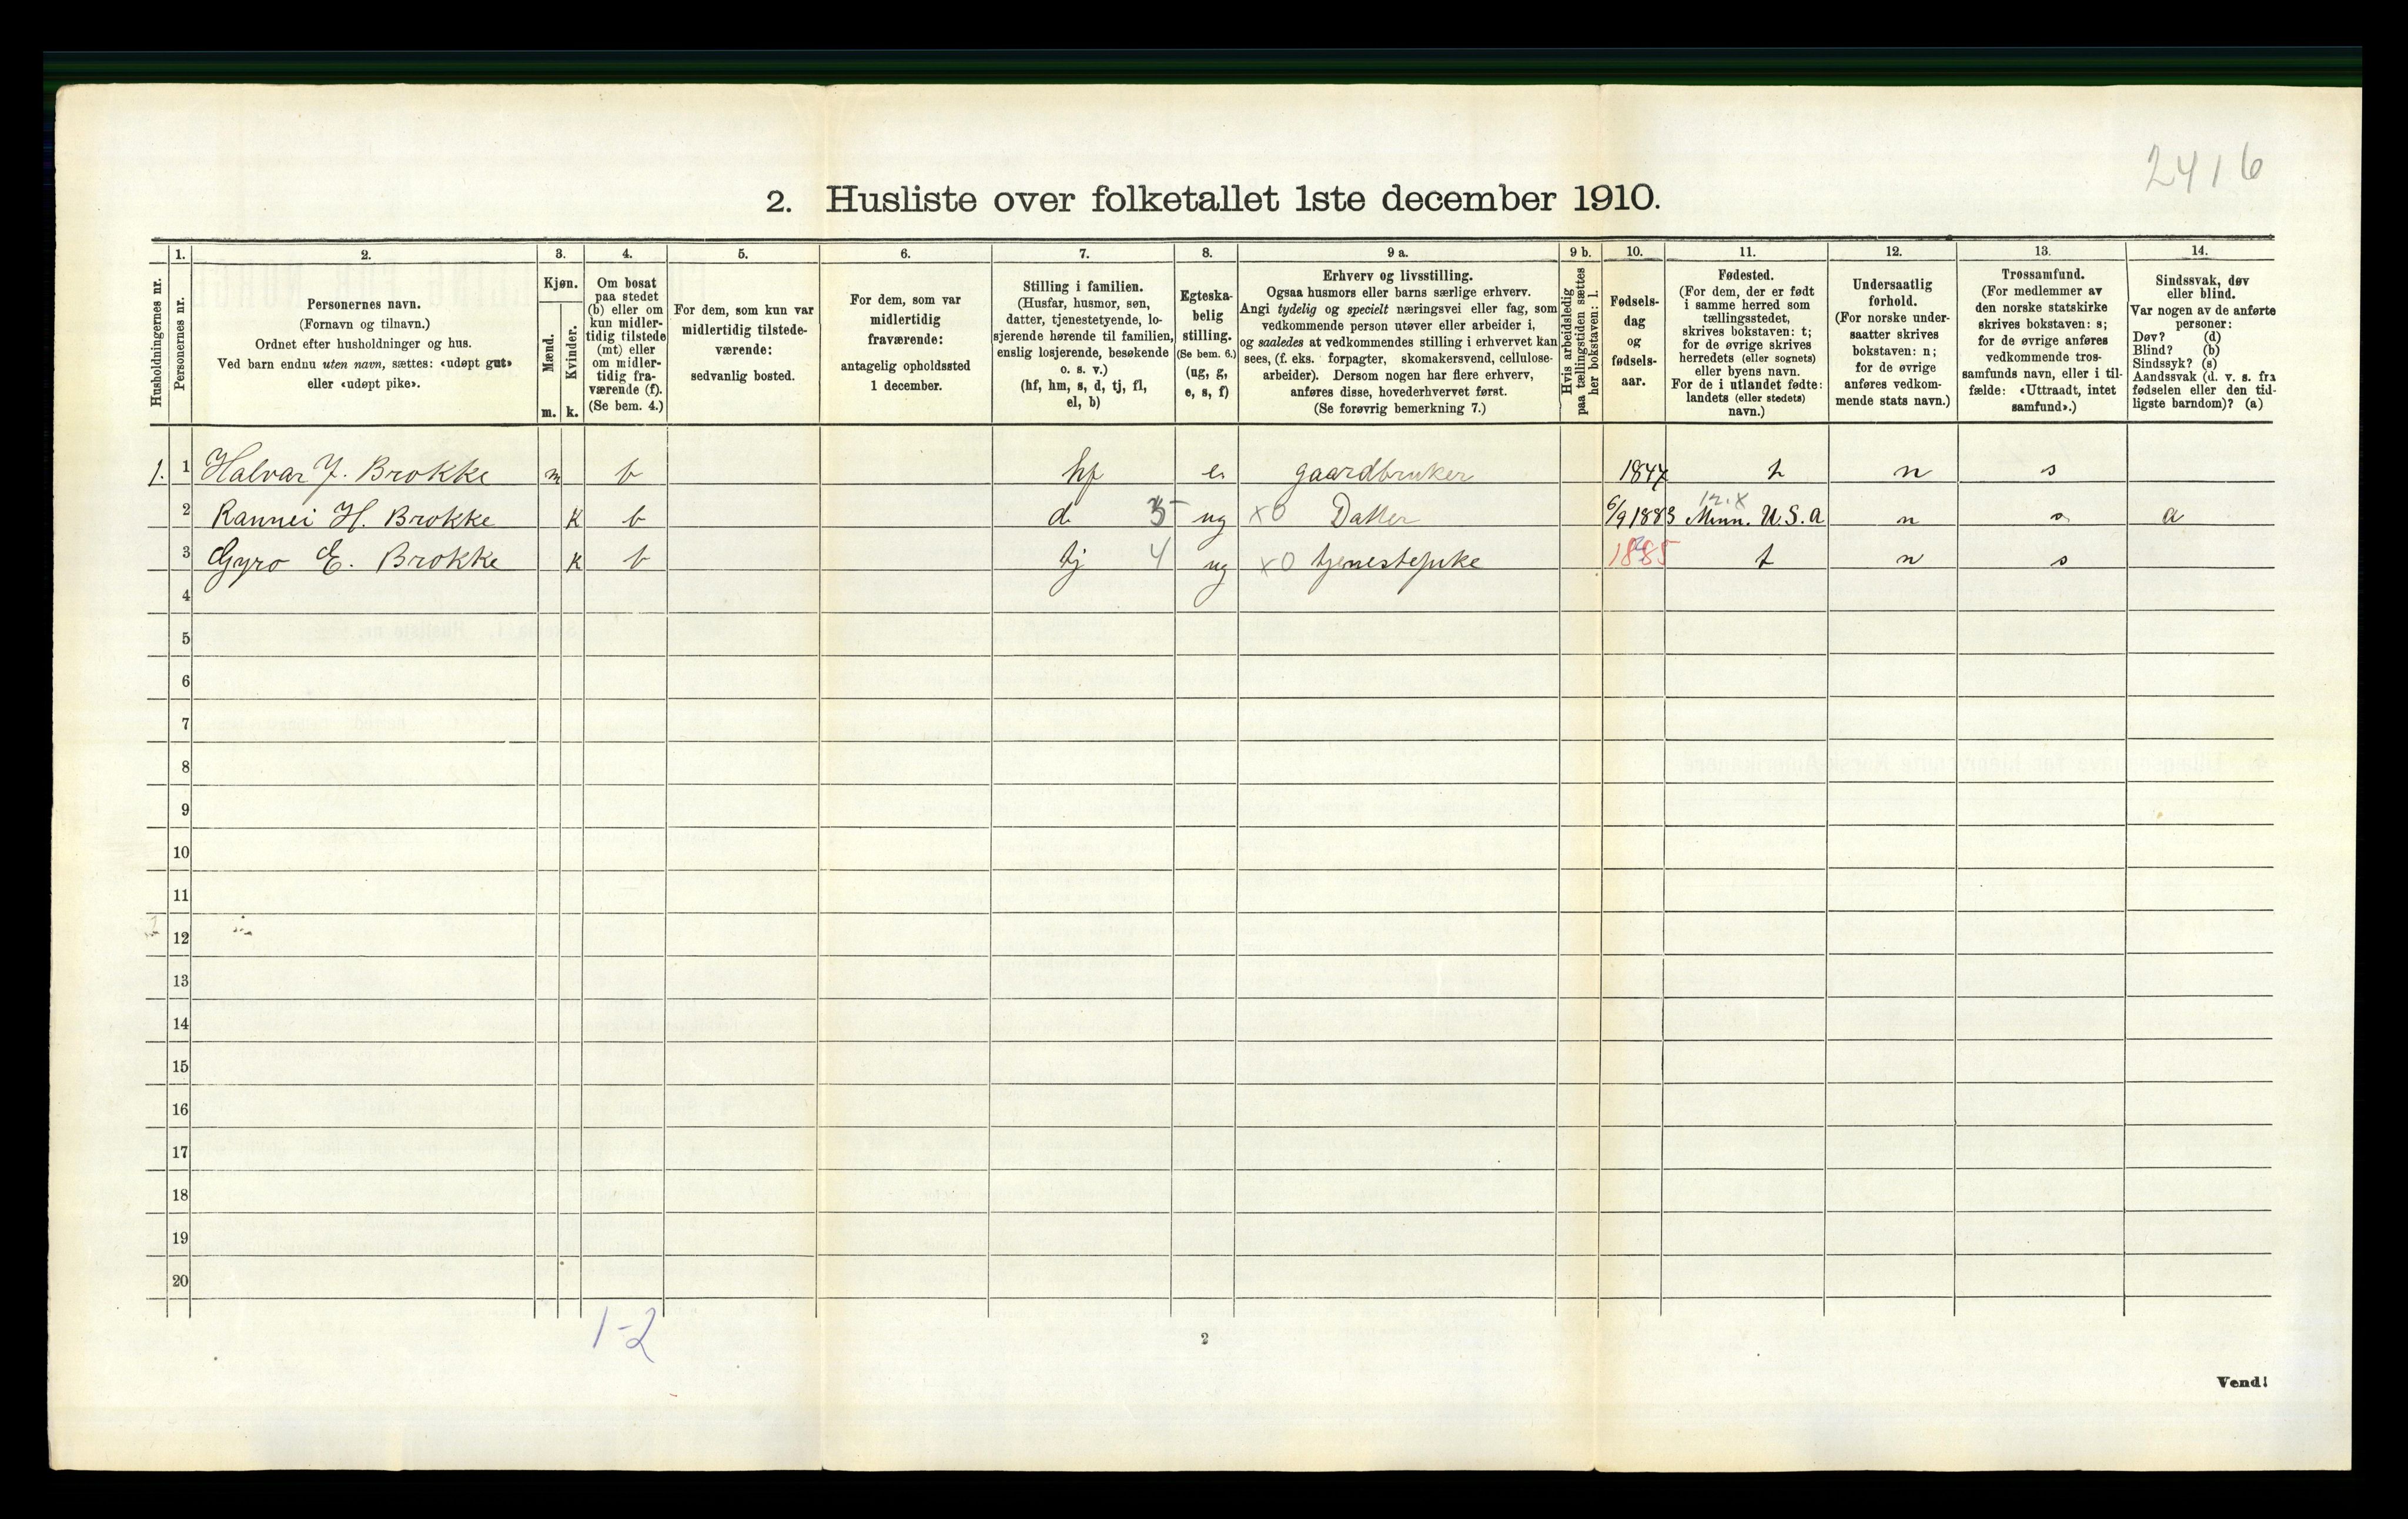 2416
2. Husliste over folketallet 1ste december 1910.
Husholdningernes nr.
1.
Personernes nr.
2.
Personernes navn.
(Fornavn og tilnavn.)
Ordnet efter husholdninger og hus.
Ved barn endnu uten navn, sættes: «udøpt gut»
eller «udøpt pike».
3.
Kjøn.
Mænd.
Kvinder.
m. k.
4.
Om bosat
paa stedet
(b) eller om
kun midler-
tidig tilstede
(mt) eller
om midler-
tidig fra-
værende (f).
(Se bem. 4.)
5.
For dem, som kun var
midlertidig tilstede-
værende:
sedvanlig bosted.
6.
For dem, som var
midlertidig
fraværende:
antagelig opholdssted
1 december.
7.
Stilling i familien.
(Husfar, husmor, søn,
datter, tjenestetyende, lo-
sjerende hørende til familien,
enslig losjerende, besøkende
o. s. v.)
(hf, hm, s, d, tj, fl,
el, b)
8.
Egteska-
belig
stilling.
(Se bem. 6.)
(ug, g,
e, s, f)
9 a.
Erhverv og livsstilling.
Ogsaa husmors eller barns særlige erhverv.
Angi tydelig og specielt næringsvei eller fag, som
vedkommende person utøver eller arbeider i,
og saaledes at vedkommendes stilling i erhvervet kan
sees, (f. eks. forpagter, skomakersvend, cellulose-
arbeider). Dersom nogen har flere erhverv,
anføres disse, hovederhvervet først.
(Se forøvrig bemerkning 7.)
9 b.
Hvis arbeidsledig
paa tællingstiden sættes
her bokstaven: l.
10.
Fødsels-
dag
og
fødsels-
aar.
11.
Fødested.
(For dem, der er født
i samme herred som
tællingsstedet,
skrives bokstaven: t;
for de øvrige skrives
herredets (eller sognets)
eller byens navn.
For de i utlandet fødte:
landets (eller stedets)
navn.)
12.
Undersaatlig
forhold.
(For norske under-
saatter skrives
bokstaven: n;
for de øvrige
anføres vedkom-
mende stats navn.)
13.
Trossamfund.
(For medlemmer av
den norske statskirke
skrives bokstaven: s;
for de øvrige anføres
vedkommende tros-
samfunds navn, eller i til-
fælde: «Uttraadt, intet
samfund».)
14.
Sindssvak, døv
eller blind.
Var nogen av de anførte
personer:
Døv? (d)
Blind? (b)
Sindssyk? (s)
Aandssvak (d. v. s. fra
fødselen eller den tid-
ligste barndom)? (a)
1. 1 Halvar J. Brokke m b hf e. gaardbruker 1847 t n s
12.X
2 Rannei H. Brokke K b d 5 ug x0 Datter 6/9 1883 Minn. U.S.A n s a
3 Gyro E. Brokke K b tj 4 ug x0 tjenestepike 1885 t n s
4
5
6
7
8
9
10
11
12
13
14
15
16
17
18
19
20
1-2
2
Vend!